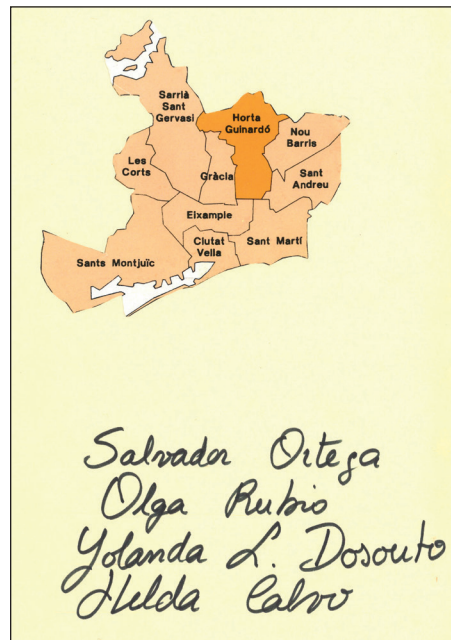 Sarrià
Sant
Gervasi
Horta
Guinardó
Nou
Barris
Les
Corts
Gràcia
Sant
Andreu
Eixample
Ciutat
Vella
Sant Martí
Sants Montjuïc
Salvador Ortega
Olga Rubio
Yolanda L. Dosouto
Hilda Calvo